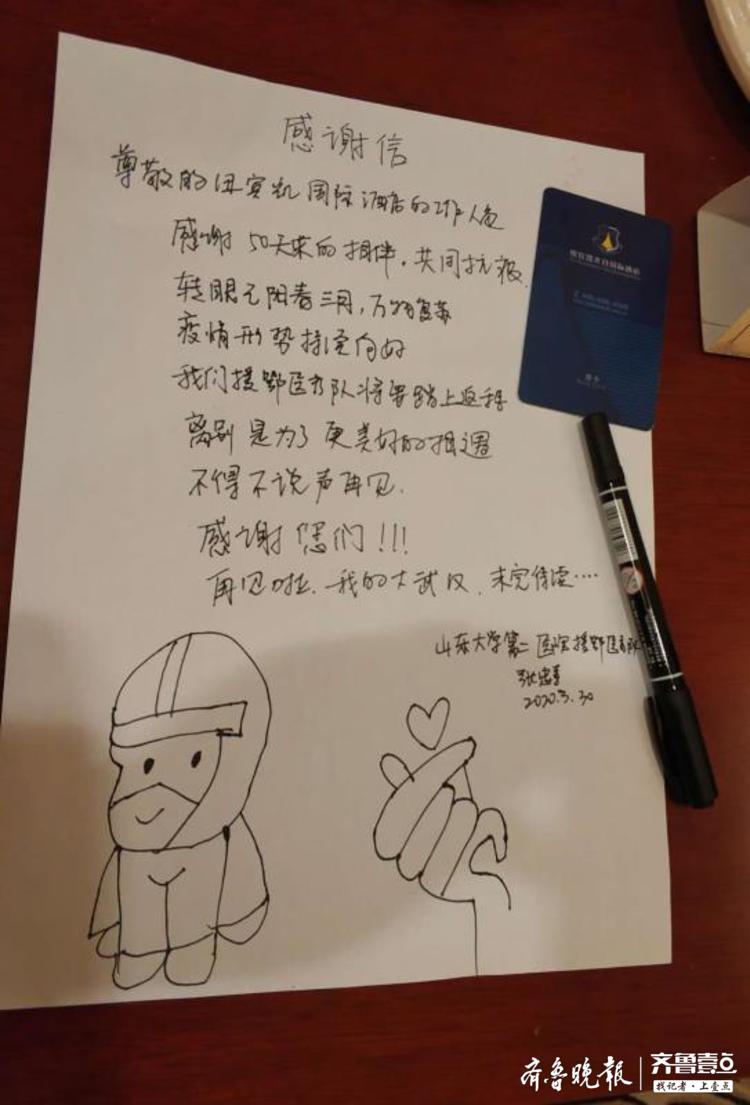 感谢信
尊敬的纽宾凯国际酒店的工作人员
感谢50天来的相伴，共同抗疫，
转眼已阳春三月，万物复苏
疫情形势持续向好
我们援鄂医疗队将要踏上返程
离别是为了更美好的相遇
不得不说声再见.
感谢您们!!!
再见啦.我的大武汉.未完待续····
山东大学第二医院援鄂医疗队
2020.3.30
齐鲁晚报
齐鲁壹点
找记者·上壹点